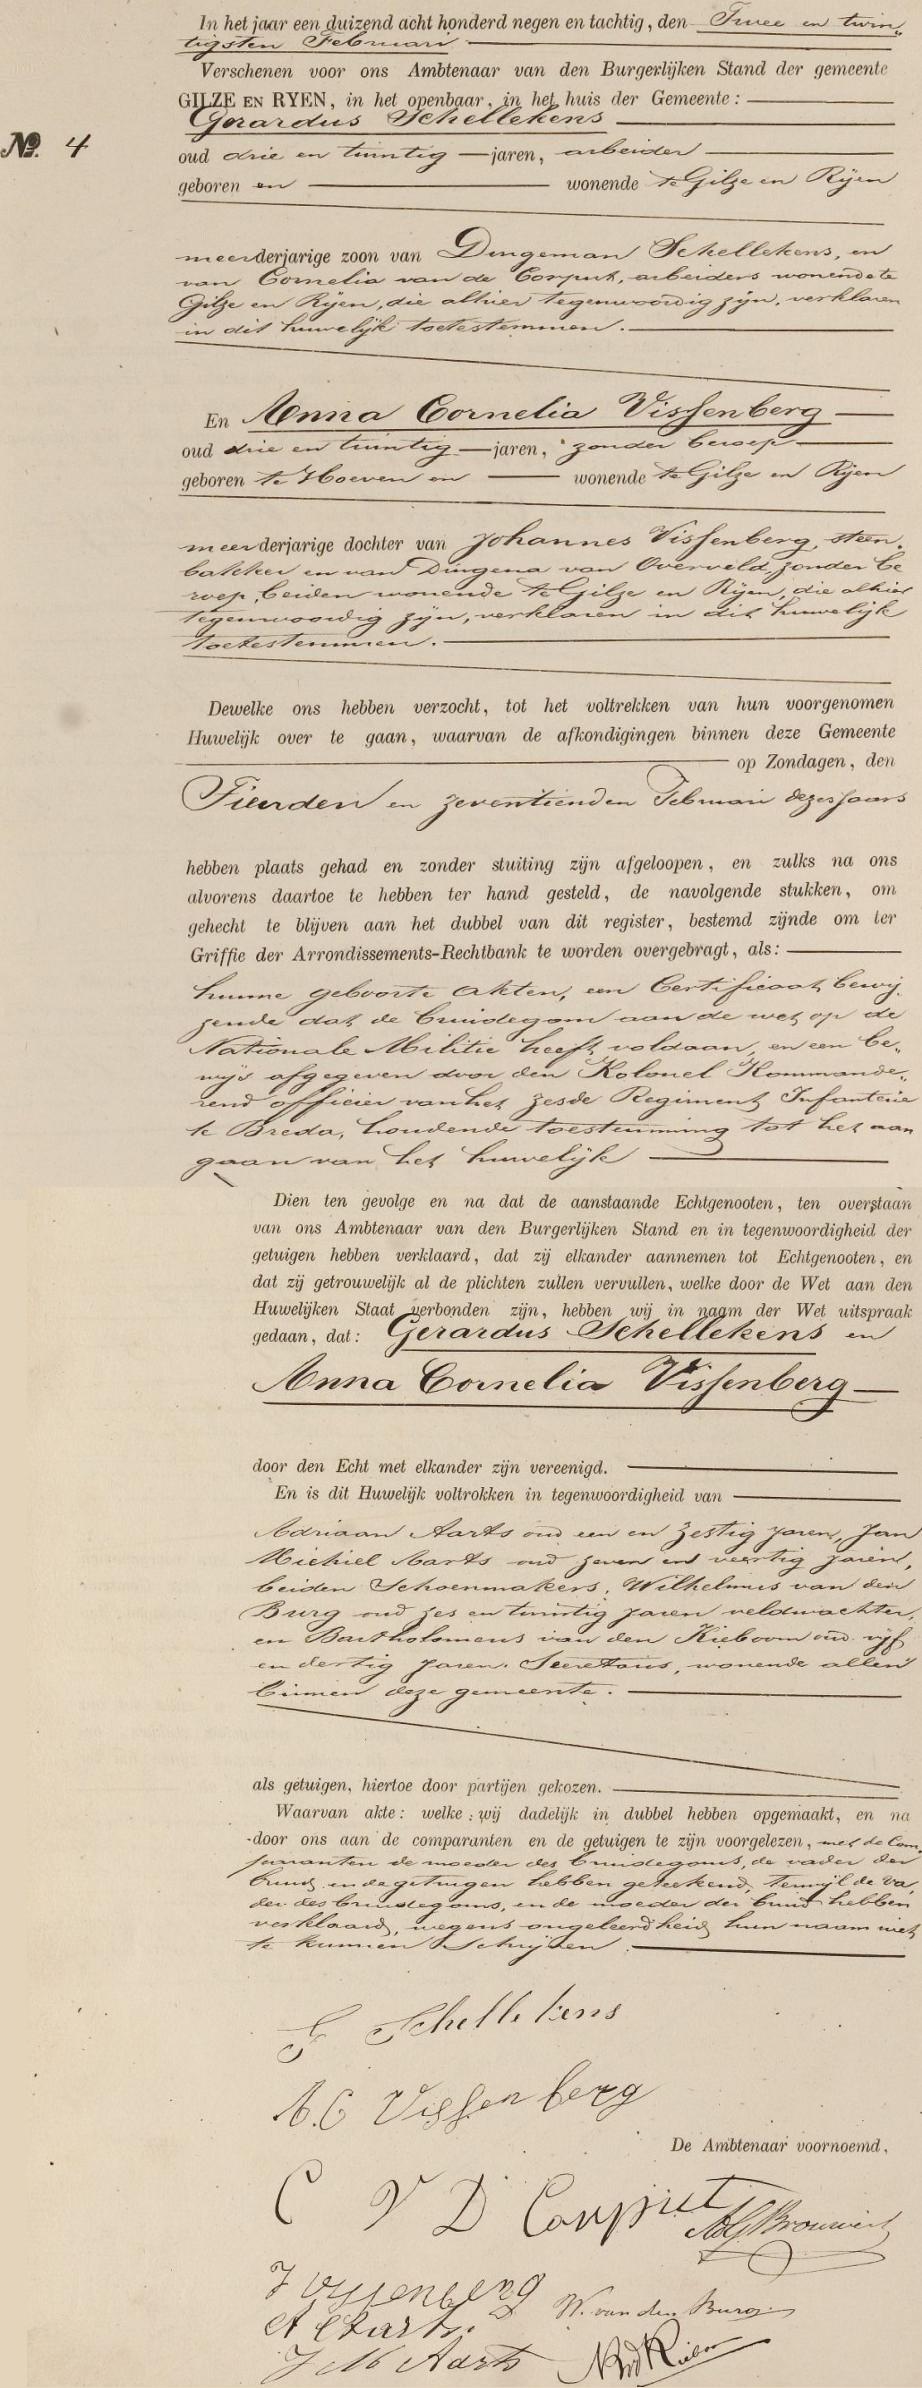 In het jaar een duizend acht honderd negen en tachtig, den Twee en twin„
tigsten Februari
Verschenen voor ons Ambtenaar van den Burgerlijken Stand der gemeente
GILZE EN RYEN, in het openbaar, in het huis der Gemeente:
Gerardus Schellekens
No. 4
oud drie en twintig jaren, arbeider
geboren en wonende te Gilze en Rijen
meerderjarige zoon van Dingeman Schellekens, en
van Cornelia van de Corput, arbeiders wonende te
Gilze en Rijen, die alhier tegenwoordig zijn, verklaren
in dit huwelijk toetestemmen.
En Anna Cornelia Vissenberg
oud drie en twintig jaren, zonder beroep
geboren te Hoeven en wonende te Gilze en Rijen
meerderjarige dochter van Johannes Vissenberg, steen„
bakker en van Dingena van Overveld, zonder be
roep, beiden wonende te Gilze en Rijen, die alhier
tegenwoordig zijn, verklaren in dit huwelijk
toetestemmen.
Dewelke ons hebben verzocht, tot het voltrekken van hun voorgenomen
Huwelijk over te gaan, waarvan de afkondigingen binnen deze Gemeente
op Zondagen, den
Tienden en zeventienden Februari dezes jaars
hebben plaats gehad en zonder stuiting zijn afgeloopen, en zulks na ons
alvorens daartoe te hebben ter hand gesteld, de navolgende stukken, om
gehecht te blijven aan het dubbel van dit register, bestemd zijnde om ter
Griffie der Arrondissements-Rechtbank te worden overgebragt, als:
hunne geboorte akten, een Certificaat bewij„
zende dat de bruidegom aan de wet op de
Nationale Militie heeft voldaan, en een be„
wijs afgegeven door den Kolonel Kommande„
rend officier van het zesde Regiment Infanterie
te Breda, houdende toestemming tot het aan
gaan van het huwelijk
Dien ten gevolge en na dat de aanstaande Echtgenooten, ten overstaan
van ons Ambtenaar van den Burgerlijken Stand en in tegenwoordigheid der
getuigen hebben verklaard, dat zij elkander aannemen tot Echtgenooten, en
dat zij getrouwelijk al de plichten zullen vervullen, welke door de Wet aan den
Huwelijken Staat verbonden zijn, hebben wij in naam der Wet uitspraak
gedaan, dat: Gerardus Schellekens en
Anna Cornelia Vissenberg
door den Echt met elkander zijn vereenigd.
En is dit Huwelijk voltrokken in tegenwoordigheid van
Adriaan Aarts oud een en zestig jaren, Jan
Michiel Aarts oud zeven en veertig jaren,
beiden Schoenmakers, Wilhelmus van den
Burg oud zes en twintig jaren veldwachter,
en Bartholomeus van den Kieboom oud vijf
en dertig jaren, Secretaris, wonende allen
binnen deze gemeente.
als getuigen, hiertoe door partijen gekozen.
Waarvan akte: welke wij dadelijk in dubbel hebben opgemaakt, en na
door ons aan de comparanten en de getuigen te zijn voorgelezen, met de Com„
paranten de moeder des bruidegoms, de vader der
bruid en de getuigen hebben geteekend, terwijl de va„
der des bruidegoms, en de moeder der bruid hebben
verklaard, wegens ongeleerdheid hun naam niet
te kunnen schrijven.
G Schellekens
A. C Vissenberg
De Ambtenaar voornoemd,
C V D Corput
Brouwers
J Vissenberg
W. van den Burg
A Aarts.
J M Aarts